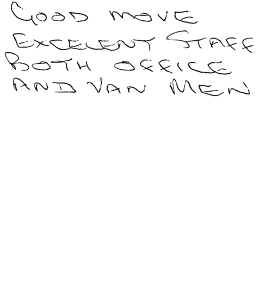 GOOD MOVE
EXCELENT STAFF
BOTH OFFICE
AND VAN MEN